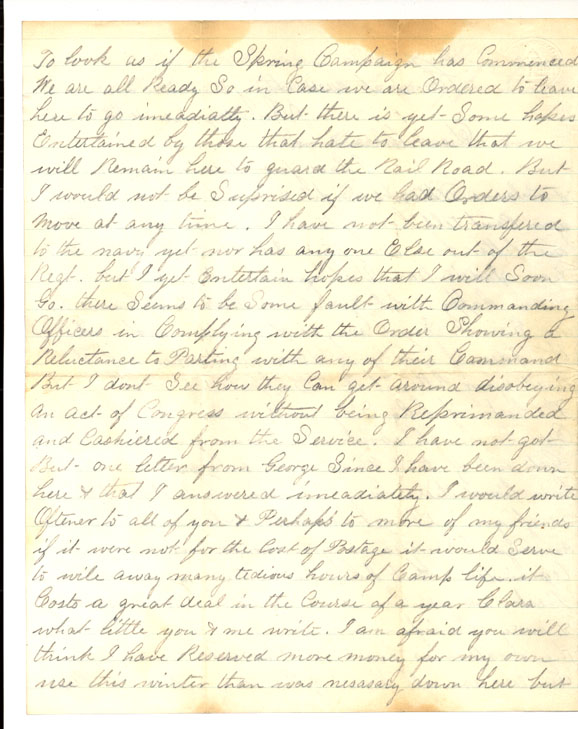 To look as if the Spring Campaign has Commenced
We are all Ready So in Case we are Ordered to leave
here to go imeadiatly. But there is yet Some hopes
Entertained by those that hate to leave that we
will Remain here to guard the Rail Road. But
I would not be Suprised if we had Orders to
Move at any time. I have not been transfered
to the navy yet nor has any one Else out of the
Regt. but I yet Entertain hopes that I will Soon
Go. there Seems to be Some fault with Commanding
Officers in Complying with the Order Showing a
Reluctance to Parting with any of their Command
But I dont See how they Can get around disobeying
An act of Congress without being Reprimanded
and Cashiered from the Service. I have not got
But one letter from George Since I have been down
here & that I answered imeadiately. I would write
Oftener to all of you & Perhaps to more of my friends
if it were not for the Cost of Postage it would Serve
to wile away many tedious hours of Camp life. it
Costs a great deal in the Course of a year Clara
what little you & me write. I am afraid you will
think I have Reserved more money for my own
use this winter than was nesasary down here but